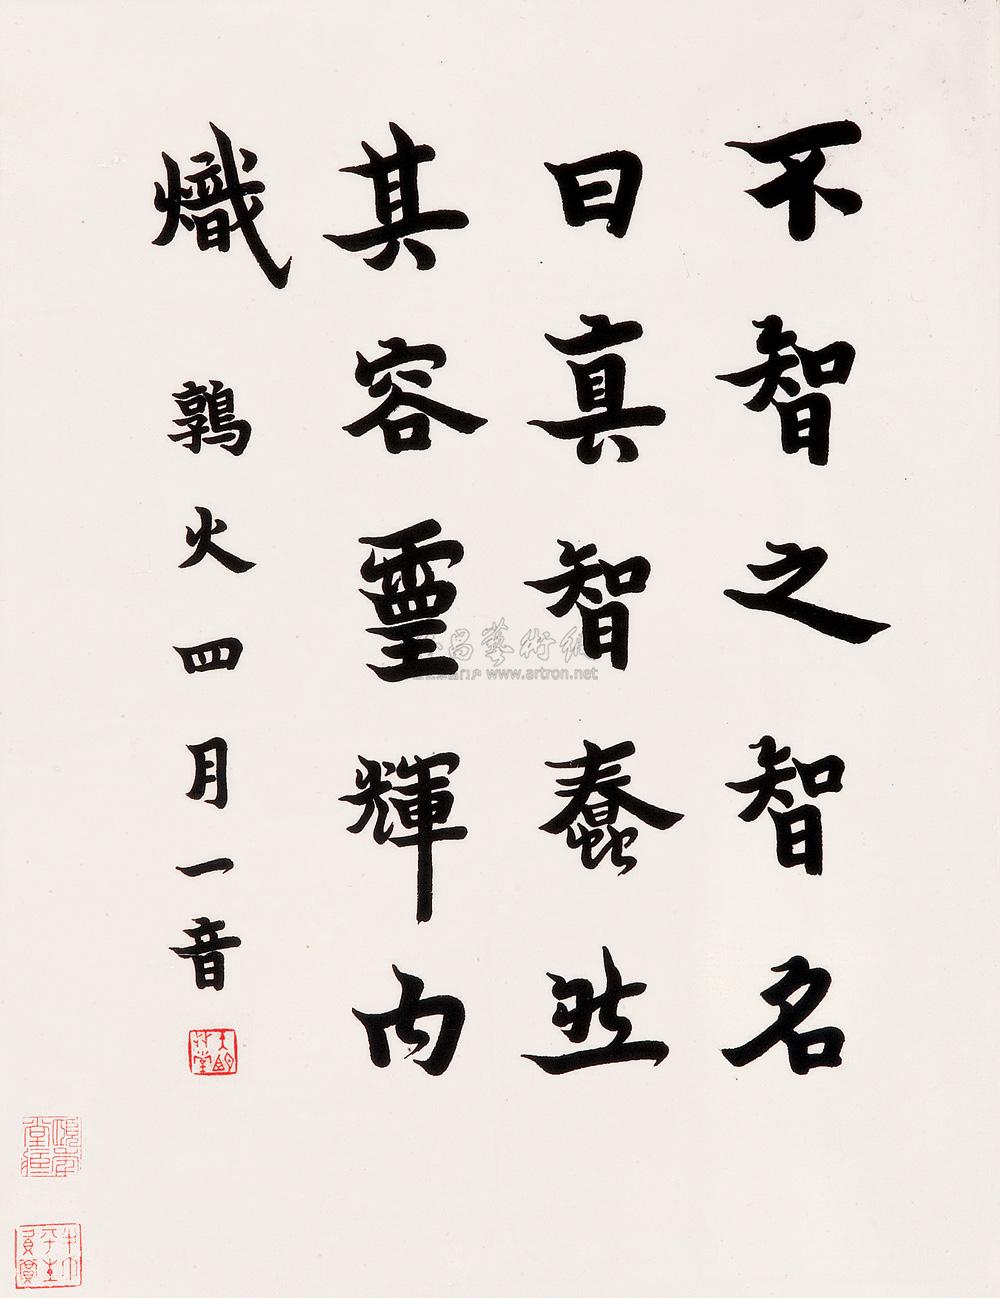 不智之智名
曰真智蠢然
其容靈輝内
熾 鶉火四月一音
www.artron.net